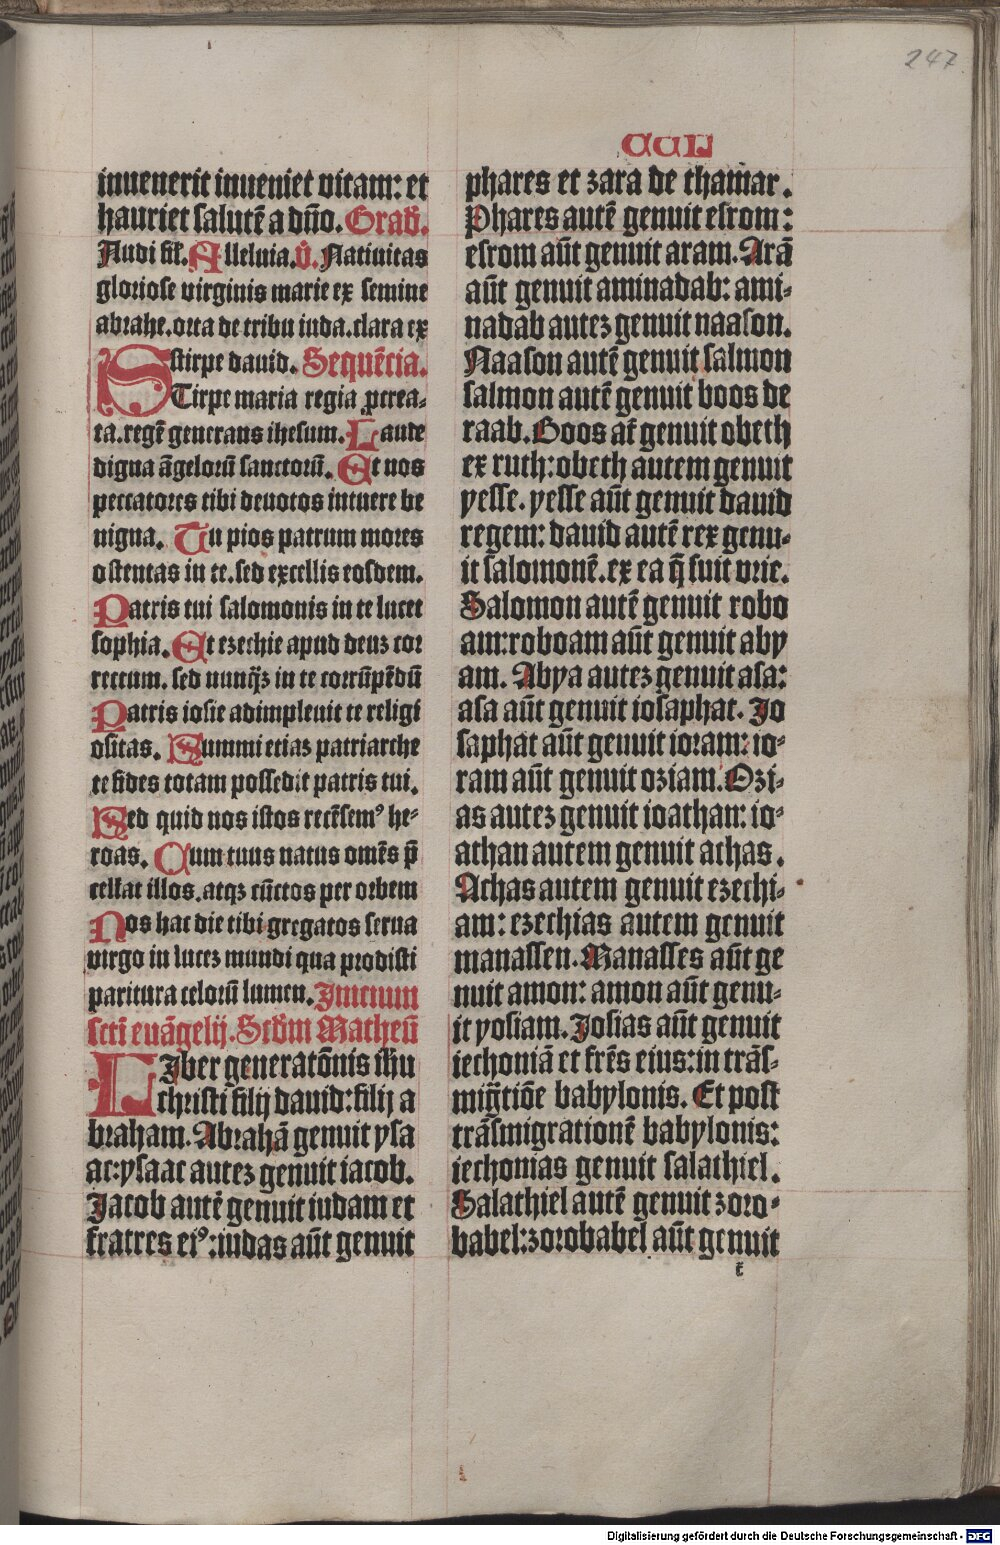 247
CCL
inuenerit inueniet vitam: et
hauriet salutē a dn̄o. Grad̄.
Audi fil. Alleluia. v̄. Natiuitas
gloriose virginis marie ex semine
abrahe.orta de tribu iuda.clara ex
stirpe dauid. Sequēcia.
STirpe maria regia ꝓcrea-
ta.regē generans ihesum. Laude
digna āgelorū sanctorū. Et nos
peccatores tibi deuotos intuere be
nigna. Tu pios patrum mores
ostentas in te.sed excellis eosdem.
Patris tui salomonis in te lucet
sophia. Et ezechie apud deuz cor
rectum. sed nunqͣꝫ in te corrūpēdū
Patris iosie adimpleuit te religi
ositas. Summi etiaz patriarche
te fides totam possedit patris tui.
Sed quid nos istos recēsemꝰ he-
roas. Cum tuus natus omēs p̄
cellat illos.atqꝫ cūctos per orbem
Nos hac die tibi gregatos serua
virgo in lucez mundi qua prodisti
paritura celorū lumen. Jnicium
scti euāgelij. Scd̄m Matheū
LJber generatōnis ih̄u
christi filij dauid:filij a
braham. Abrahā genuit ysa
ac:ysaac autez genuit iacob.
Jacob autē genuit iudam et
fratres eiꝰ:iudas aūt genuit
phares et zara de thamar.
Phares autē genuit esrom:
esrom aūt genuit aram. Arā
aūt genuit aminadab: ami-
nadab autez genuit naason.
Naason autē genuit salmon
salmon autē genuit boos de
raab. Boos at̄ genuit obeth
ex ruth:obeth autem genuit
yesse. yesse aūt genuit dauid
regem: dauid autē rex genu-
it salomonē.ex ea q̄ fuit vrie.
Salomon autē genuit robo
am:roboam aūt genuit aby
am. Abya autez genuit asa:
asa aūt genuit iosaphat. Jo
saphat aūt genuit ioram: io-
ram aūt genuit oziam. Ozi-
as autez genuit ioathan: io-
athan autem genuit achas.
Achas autem genuit ezechi-
am: ezechias autem genuit
manassen. Manasses aūt ge
nuit amon: amon aūt genu-
it yosiam. Josias aūt genuit
iechoniā et fr̄es eius:in trās-
mig̃tiōe babylonis. Et post
trāsmigrationē babylonis:
iechonias genuit salathiel.
Salathiel autē genuit zoro-
babel:zorobabel aūt genuit
Digitalisierung gefördert durch die Deutsche Forschungsgemeinschaft - DFG